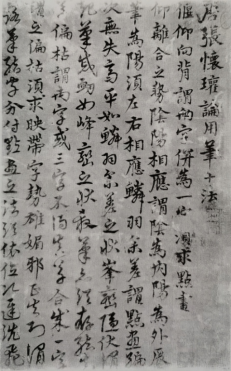 唐張懷瓘論用筆十法
偃仰向背謂兩字併為一 須求點畫
仰離合之勢陰陽相應謂陰為內陽為外展
筆為陽須左右相應鱗羽參差謂點畫編
次無失高下如鱗羽參差之狀峯巒起伏謂
起筆蹙衄如峰巒之狀殺筆亦須存結
偏枯謂兩字或三字不得真草合成一字
謂之偏枯須求映帶字勢雄媚邪真失則謂
落筆結字分付點畫之法須依位次遲澁飛